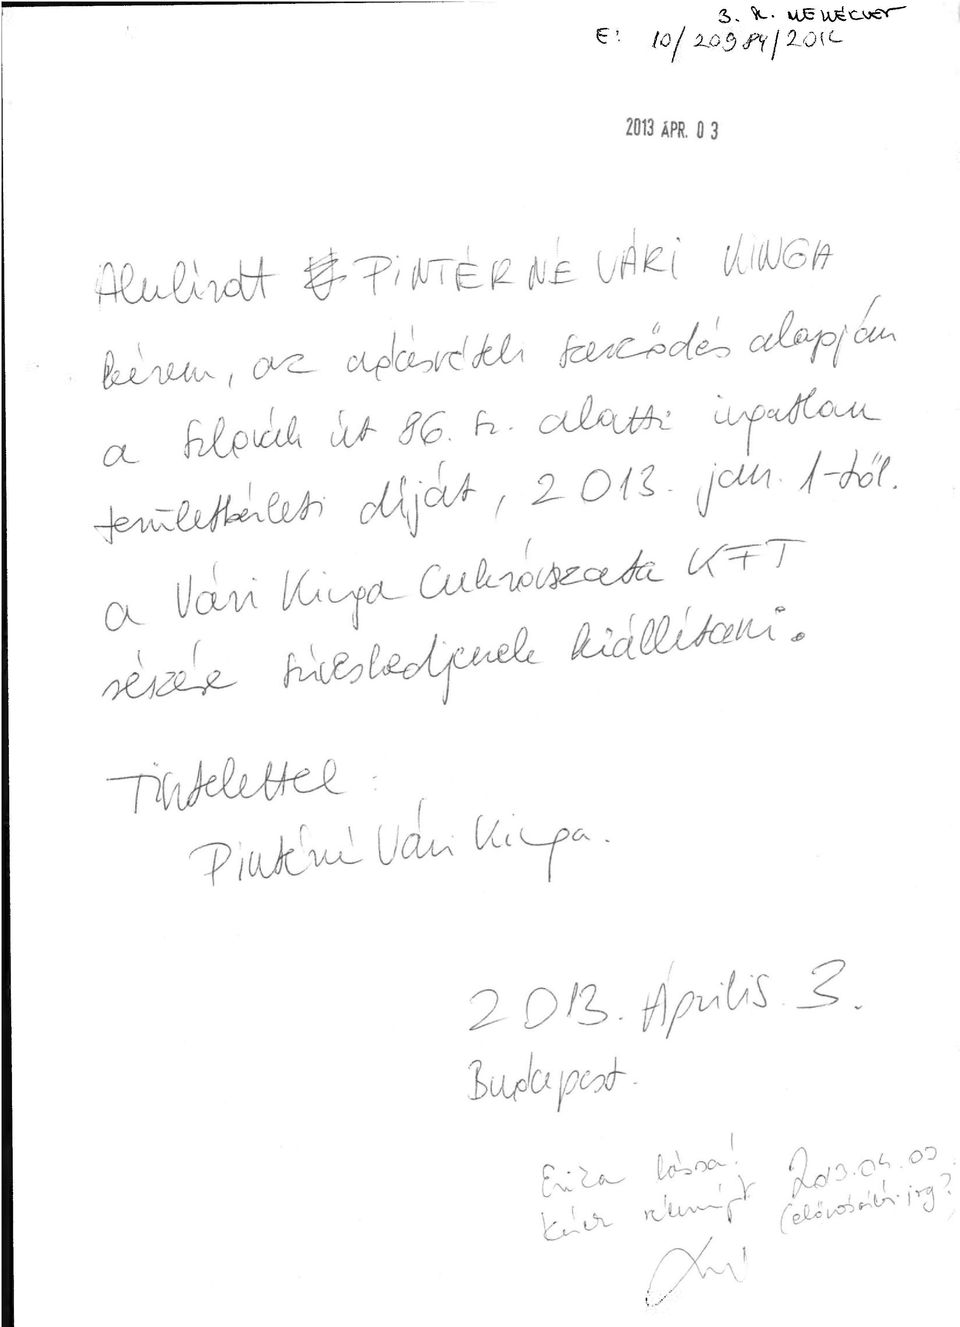 3. K. MELLÉKLET
E: 10/20984/2012
2013 ÁPR. 03
Alulírott PINTÉRNÉ VÁRI KINGA
kérem, az adásvételi szerződés alapján
a Szlovák út 86. sz. alatti ingatlan
területbérleti díját, 2013. jan. 1-től.
a Vári Kinga Cukrászata KFT
részére szíveskedjenek kiállítani.
Tisztelettel:
Pintérné Vári Kinga.
2013. Április 3.
Budapest.
lássa! 2013.04.03
(elővásárlási jog?